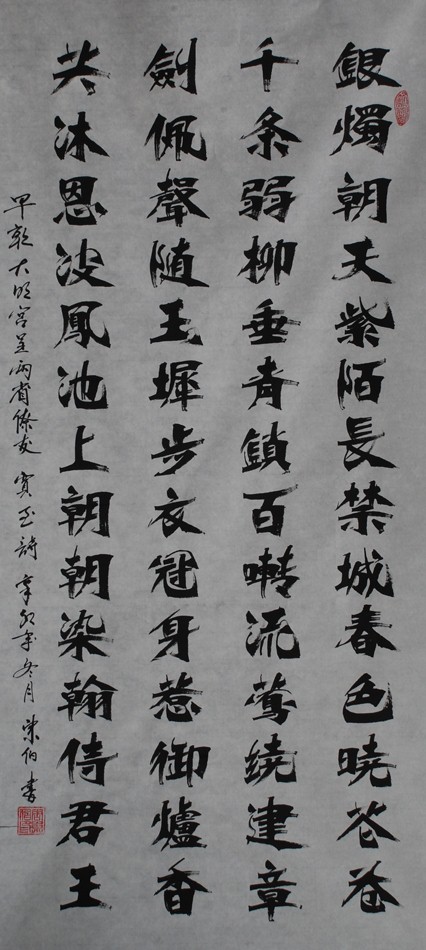 銀燭朝天紫陌長禁城春色曉苍苍
千条弱柳垂青鎖百囀流莺绕建章
劍佩聲随玉墀步衣冠身惹御爐香
共沐恩波鳳池上朝朝染翰侍君王
早朝大明宮呈兩省僚友 賈至詩 辛卯年冬月 荣伯書